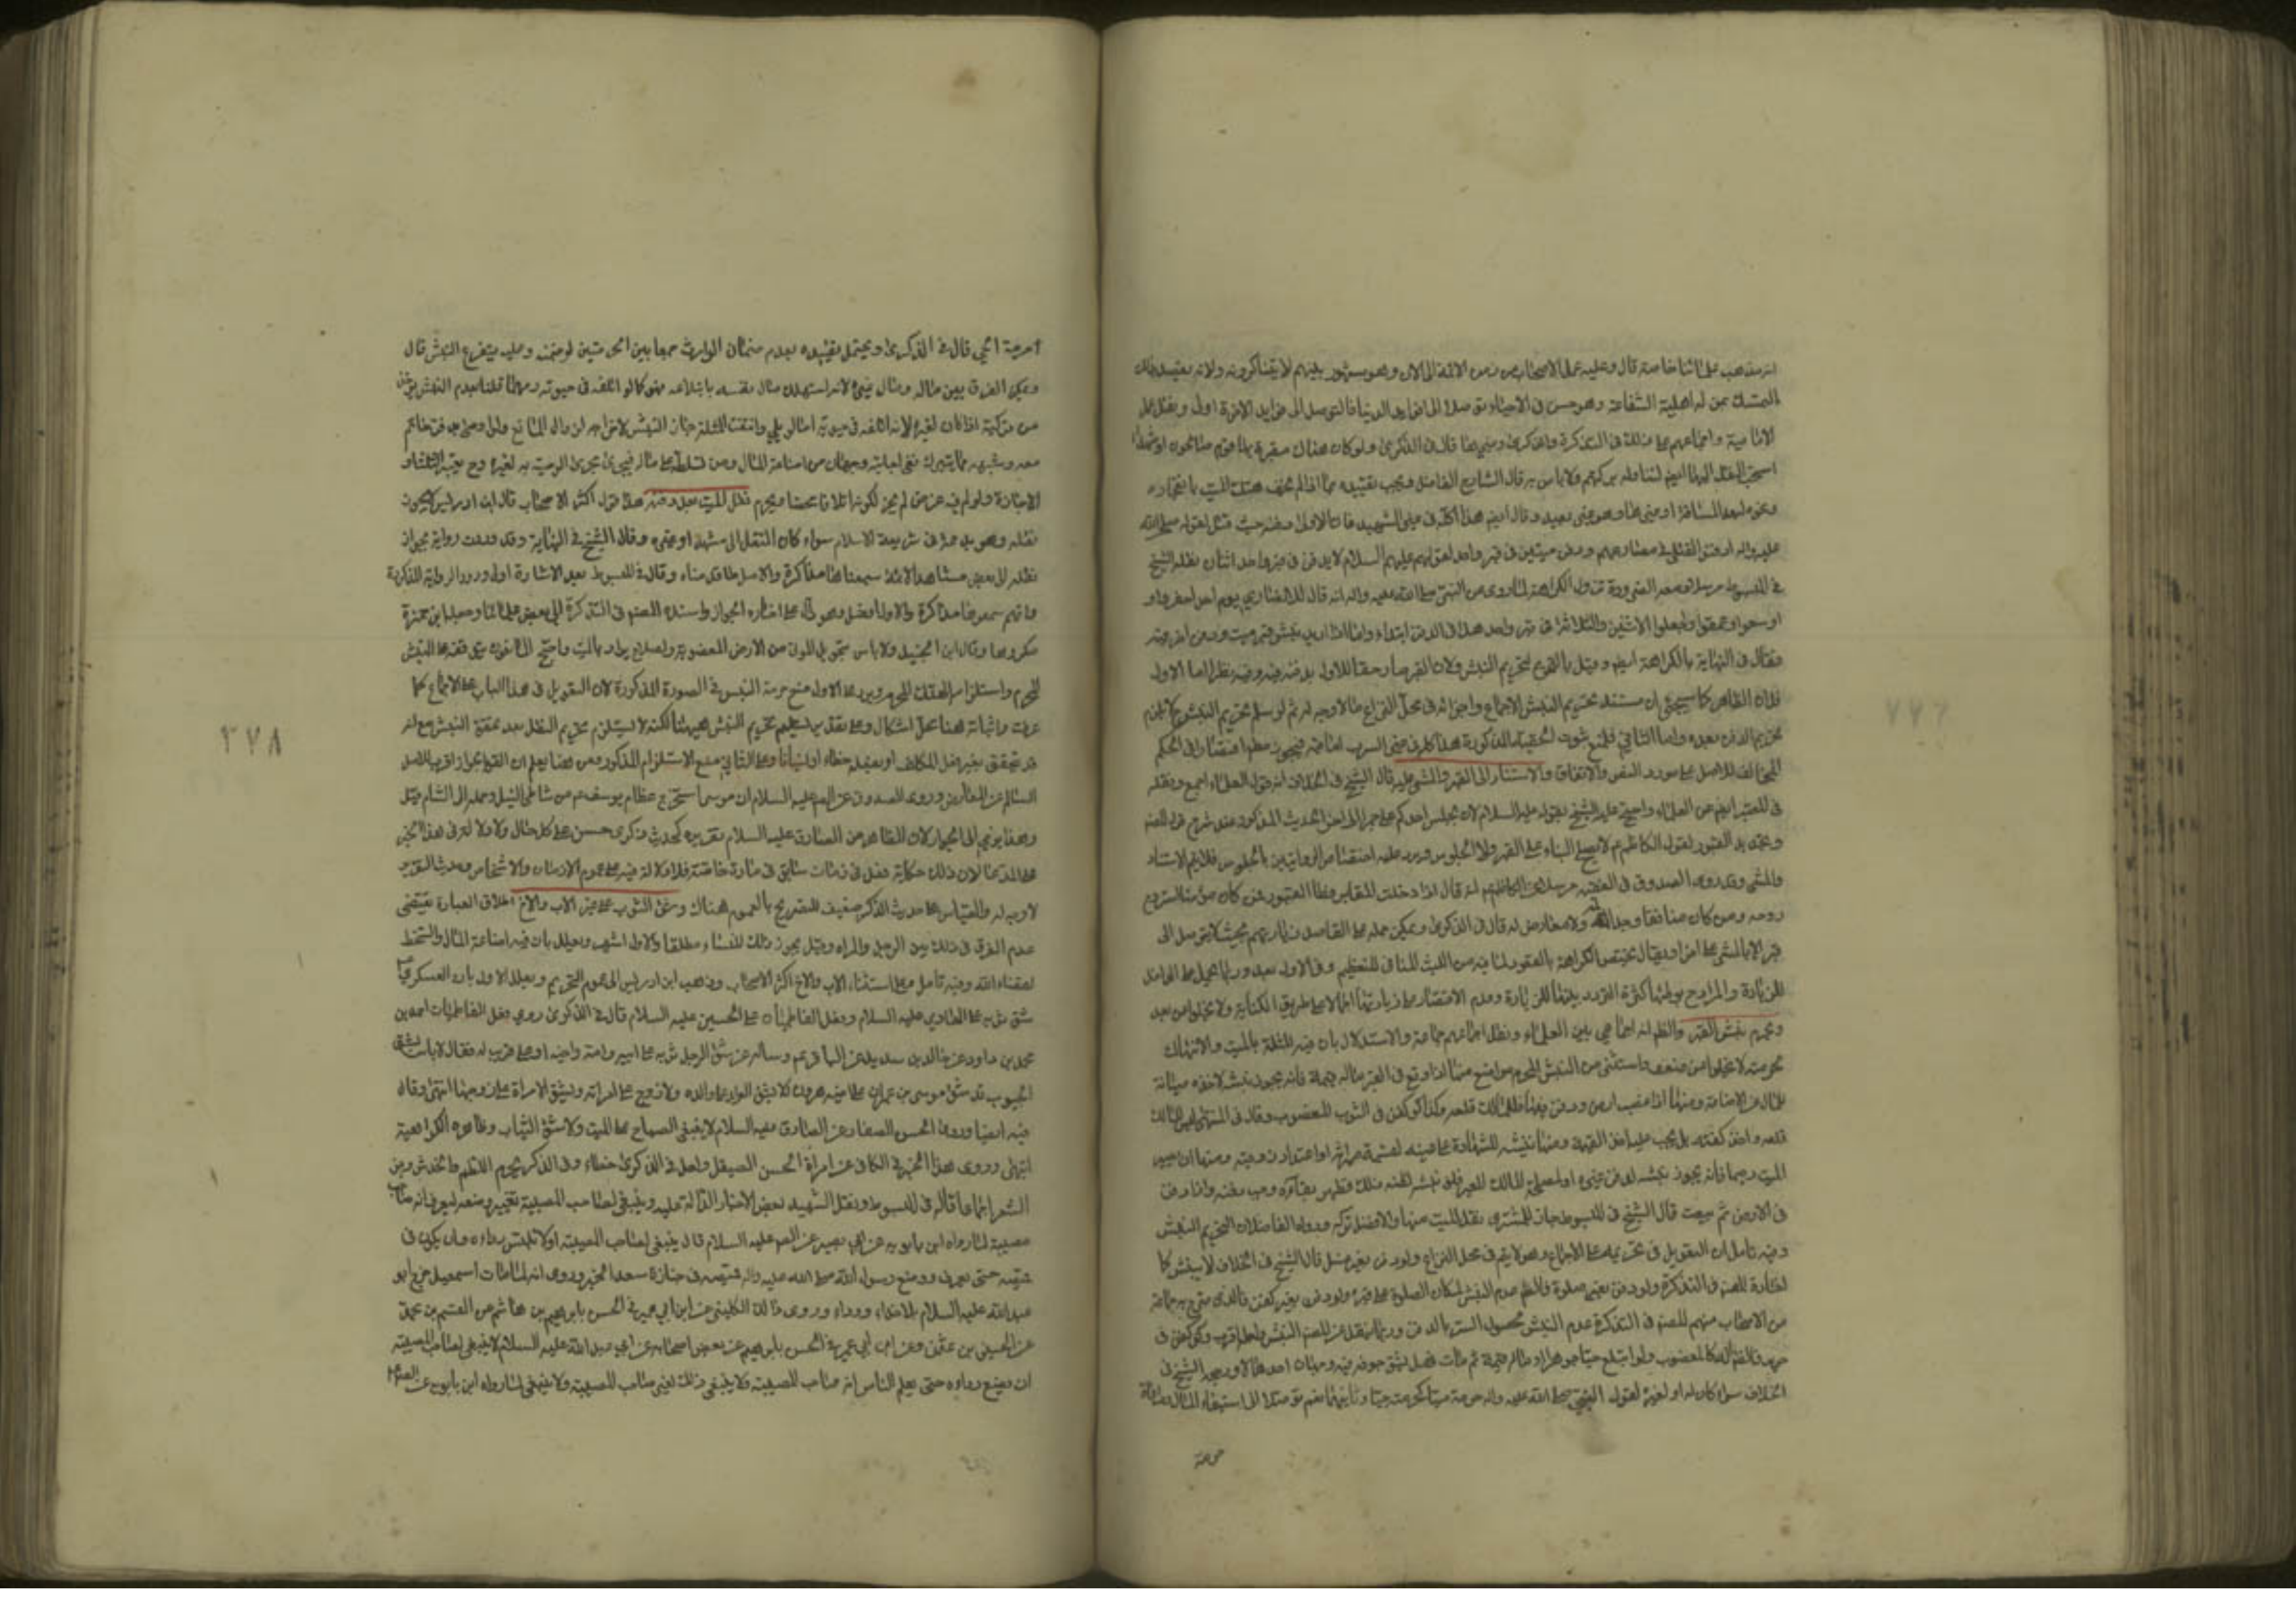 انه مذهب علمائنا خاصة قال وعليه عمل الاصحاب من زمن الائمة الى الان وهو مشهور بينهم لا يتناكرونه ولانه يقصد بذلك
التمسك بمن له اهلية الشفاعة وهو حسن فى الاحياء توصلا الى فوايد الدنيا فالتوصل الى فوايد الاخرة اولى ونقل عمل
الامامية واجماعهم على ذلك فى التذكرة والذكرى ومنى هذا قال فى الذكرى ولو كان هناك مقبرة بها قوم صالحون او شهداء
استحب النقل اليها ايضا لتناوله بركتهم ولا باس به قال الشارح الفاضل ويجب تقييده بما اذا لم يخف هتك الميت بانفجاره
ونحوه لبعد المسافة او غيرها وهو غير بعيد وقال ايضا هذا كله فى غير الشهيد فان الاولى دفنه حيث قتل لقوله صلى الله
عليه واله ادفنوا القتلى فى مصارعهم ودفن ميتين فى قبر واحد لقولهم عليهم السلام لا يدفن فى قبر واحد اثنان نقله الشيخ
فى المبسوط مرسلا ومع الضرورة تزول الكراهة لما روى عن النبى صلى الله عليه واله انه قال للانصار يوم احد احفروا و
اوسعوا وعمقوا واجعلوا الاثنين والثلاثة فى قبر واحد هذا فى الدفن ابتداء واما اذا اريد نبش قبر ميت ودفن اخر فيه
فقال فى النهاية بالكراهة ايضا وقيل بالتحريم لتحريم النبش ولان القبر صار حقا للاول بدفنه فيه وفيه نظر اما الاول
فلان الظاهر كما سيجئ ان مستند تحريم النبش الاجماع واجراؤه فى محل النزاع مما لا وجه له ثم لو سلم تحريم النبش فلا يلزم
تحريم الدفن بعده واما الثانى فلمنع ثبوت الحقية المذكورة هذا كله فى غير السرب اما فيه فيجوز مطلقا اقتصارا فى الحكم
المخالف للاصل على مورد النص والاتفاق والاستناد الى القبر والمشى عليه قال الشيخ فى الخلاف انه قول العلماء اجمع ونقله
فى المعتبر ايضا عن العلماء واحتج عليه الشيخ بقوله عليه السلام لان يجلس احدكم على جمر الى اخر الحديث المذكور عند شرح قول المصنف
وتجديد القبور لقول الكاظم ع لا يصلح البناء على القبر ولا الجلوس ويرد عليه اختصاص الروايتين بالجلوس فلا يتم الاستناد
والمشى وقد روى الصدوق فى الفقيه مرسلا عن الكاظم ع انه قال اذا دخلت المقابر فطأ القبور فمن كان مؤمنا استروح
روحه ومن كان منافقا وجد المه ولا معارض له قال فى الذكرى ويمكن حمله على القاصد زيارتهم بحيث لا يتوصل الى
قبر الا بالمشى على اخر او يقال تختص الكراهة بالقعود لما فيه من اللبث المنافى للتعظيم وفى الاول بعد وربما يحمل على الداخل
للزيارة والمراد بوطئها كثرة التردد بينها للزيارة وعدم الاقتصار على زيارتها اجمالا على طريق الكناية ولا يخلو من بعد
ويحرم نبش القبر والظاهر انه اجماعى بين العلماء ونقل اجماعهم جماعة والاستدلال بان فيه المثلة بالميت والانتهاك
لحرمته لا يخلو من ضعف واستثنى من النبش المحرم مواضع منها اذا وقع فى القبر ماله قيمة فانه يجوز نبشه لاخذه صيانة
للمال عن الاضاعة ومنها اذا غصب ارض ودفن فيها فللمالك قلعه وكذا لو كفن فى الثوب المغصوب وقال فى المنتهى ليس للمالك
قلعه واخذ كفنه بل يجب عليه اخذ القيمة ومنها نبشه للشهادة على عينه لقسمة ميراثه او اعتداد زوجته ومنها ان يصير
الميت رميما فانه يجوز نبشه لدفن غيره او لمصلحة المالك للقبر فلو نبشه لظنه ذلك فظهر بقاؤه وجب دفنه واذا دفن
فى الارض ثم بيعت قال الشيخ فى المبسوط جاز للمشترى نقل الميت عنها والافضل تركه ورده الفاضلان لتحريم النبش
وفيه تامل لان التعويل فى تحريمه على الاجماع وهو لا يتم فى محل النزاع ولو دفن بغير غسل قال الشيخ فى الخلاف لا ينبش كما
اختاره المصنف فى التذكرة ولو دفن بغير صلوة فالظاهر عدم النبش لامكان الصلوة على قبره ولو دفن بغير كفن فالذى صرح به جماعة
من الاصحاب منهم المصنف فى التذكرة عدم النبش لحصول الستر بالدفن وربما ينقل عن المصنف النبش ولعله اقرب ولو كفن فى
حرير فالظاهر انه كالمغصوب ولو ابتلع حيا جوهرا او ماله قيمة ثم مات فهل يشق جوفه فيه وجهان احدهما لا ورجحه الشيخ فى
الخلاف سواء كان له او لغيره لقول النبى صلى الله عليه واله حرمة ميتا كحرمته حيا وثانيهما نعم توصلا الى استيفاء المال
حرمة
امرجة الحى قال فى الذكرى ويحتمل تقييده بعدم ضمان الوارث جمعا بين الحرمتين لو ضمنه وعليه يتفرع النبش قال
ويمكن الفرق بين ماله ومال غيره لانه استهلك مال نفسه بابتلاعه فهو كما لو اتلفه فى حيوته ومهما قلنا بعدم النبش يؤخذ
من تركته اذا كان لغيره لانه اتلفه فى حيوته اما لو بلى وانتفت المثلة جاز النبش لاخراجه لزوال المانع ولو اوصى بدفن خاتم
معه وشبهه مما يتبرك ففى اجابته وجهان من اضاعة المال ومن تسلطه على ماله فيجرى مجرى الوصية به لغيره وح يعتبر الثلث او
الاجازة ولو لم فيه غرض لم يجز لكونه اتلافا محضا ويحرم نقل الميت بعد دفنه هذا قول اكثر الاصحاب قال ابن ادريس لا يجوز
نقله وهو بدعة فى شريعة الاسلام سواء كان النقل الى مشهد او غيره وقال الشيخ فى النهاية وقد وردت رواية بجواز
نقله الى بعض مشاهد الائمة سمعناها مذاكرة والاصل ما قدمناه وقال فى المبسوط بعد الاشارة الى ورود الرواية المذكورة
وانهم سمعوها مذاكرة والاول افضل وهو دال على اختياره الجواز واسنده المصنف فى التذكرة الى بعض علمائنا وجعله ابن حمزة
مكروها وقال ابن الجنيد ولا باس بتحويل الموتى من الارض المغصوبة ولصلاح يراد بالميت واحتج المانعون بتوقفه على النبش
المحرم واستلزامه الهتك المحرم ويرد على الاول منع حرمة النبش فى الصورة المذكورة لان التعويل فى هذا الباب على الاجماع كما
عرفت واثباته هنا محل اشكال وعلى تقدير تسليم تحريم النبش هيهنا لكنه لا يستلزم تحريم النقل بعد تحقق النبش مع انه
قد يتحقق بغير فعل المكلف او بفعله خطاء او نسيانا وعلى الثانى منع الاستلزام المذكور ومن هنا يعلم ان القول بالجواز اقرب للاصل
السالم عن المعارض وروى الصدوق عن الصادق عليه السلام ان موسى استخرج عظام يوسف ع من شاطئ النيل وحمله الى الشام قيل
وهذا يؤمى الى الجواز لان الظاهر من الصادق عليه السلام تقريره لحديث ذكرى حسن على كل حال ولا دلالة فى هذا الخبر
على المدعا لان ذلك حكاية فعل فى زمان سابق فى مادة خاصة فلا دلالة فيه على عموم الازمان والاشخاص وحديث التقرير
لا وجه له والقياس على حديث الذكر ضعيف للتصريح بالعموم هناك وشق الثوب على غير الاب والاخ اطلاق العبارة يقتضى
عدم الفرق فى ذلك بين الرجل والمراة وقيل يجوز ذلك للنساء مطلقا والاول اشهر وعلل بان فيه اضاعة المال والسخط
لقضاء الله وفيه تامل وعلى استثناء الاب والاخ اكثر الاصحاب وذهب ابن ادريس الى عموم التحريم ويعلل الاول بان العسكرى ع
شق ثوبه على الهادى عليه السلام وفعل الفاطميات على الحسين عليه السلام قال فى الذكرى روى فعل الفاطميات احمد بن
محمد بن داود عن خالد بن سدير عن الباقر ع وساله عن شق الرجل ثوبه على ابيه وامه واخيه او على قريب له فقال لا باس بشق
الجيوب قد شق موسى بن عمران على اخيه هرون ولا يشق الوالد على ولده ولا زوج على امراته وتشق الامراة على زوجها انتهى وقال
فيه ايضا وروى الحسن الصفار عن الصادق عليه السلام لا ينبغى الصياح على الميت ولا شق الثياب وظاهره الكراهية
انتهى وروى هذا الخبر فى الكافى عن امراة الحسن الصيقل ولعل فى الذكرى خطاء وفى الذكرى يحرم اللطم والخدش وجز
الشعر اجماعا قاله فى المبسوط ونقل الشهيد بعض الاخبار الدالة عليه وينبغى لصاحب المصيبة تغيير وضعه ليعرف انه صاحب
مصيبة لما رواه ابن بابويه عن ابى بصير عن الصادق عليه السلام قال ينبغى لصاحب المصيبة ان لا تلبس رداء وان يكون فى
قميصه حتى يعرف ووضع رسول الله صلى الله عليه واله رداءه فى جنازة سعد الخبر وروى انه لما مات اسمعيل خرج ابو
عبد الله عليه السلام بلا حذاء ورداء وروى ذلك الكلينى عن ابن ابى عمير فى الحسن بابراهيم بن هاشم عن القسم بن محمد
عن الحسين بن عثمن وعن ابن ابى عمير فى الحسن بابراهيم عن بعض اصحابه عن ابى عبد الله عليه السلام لا ينبغى لصاحب المصيبة
ان يضع رداءه حتى يعلم الناس انه صاحب المصيبة ولا ينبغى ذلك لغير صاحب المصيبة ولا ينبغى لما رواه ابن بابويه عن الصادق ع
٣٧٨